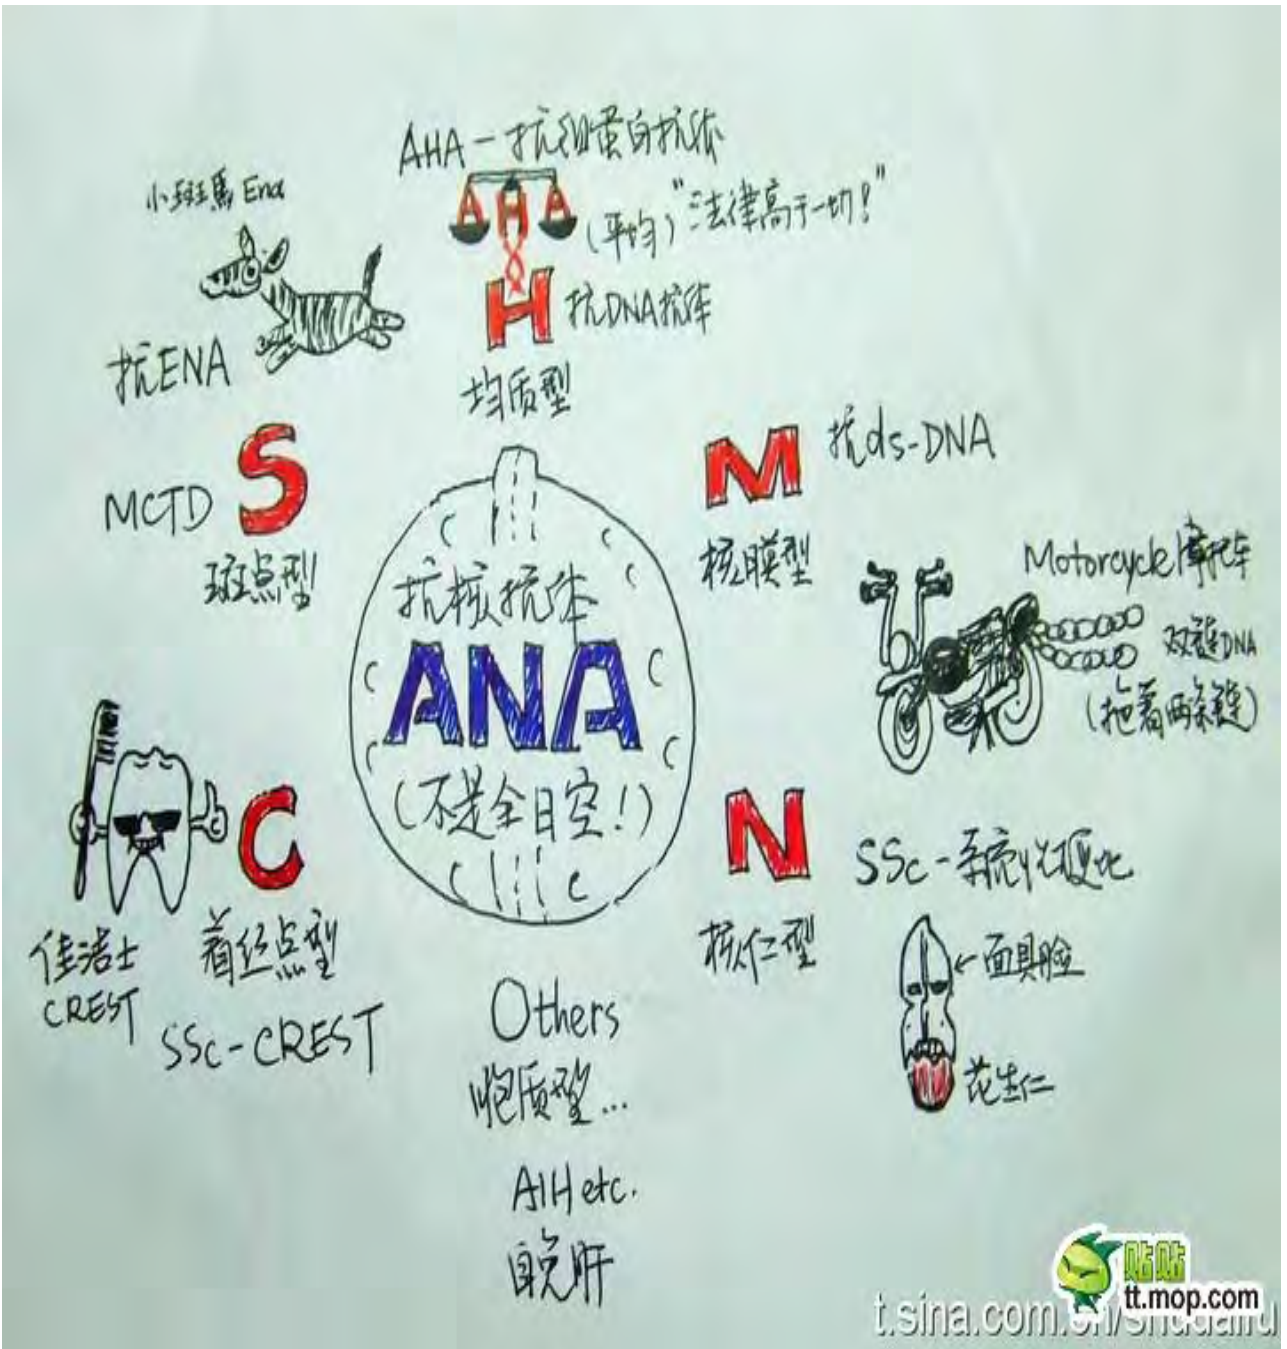 AHA-抗组蛋白抗体
小斑馬 Ena
AHA
(平均)"法律高于一切!"
H 抗DNA抗体
均质型
抗ENA
S
MCTD
斑点型
M 抗ds-DNA
核膜型
Motorcycle 摩托车
双链DNA
(拖着两条链)
抗核抗体
ANA
(不是全日空!)
C
着丝点型
佳洁士
CREST
SSc-CREST
N
核仁型
SSc-系统性硬化
面具脸
花生仁
Others
胞质型...
AIH etc.
自免肝
贴贴
tt.mop.com
t.sina.com.cn/shudaifu